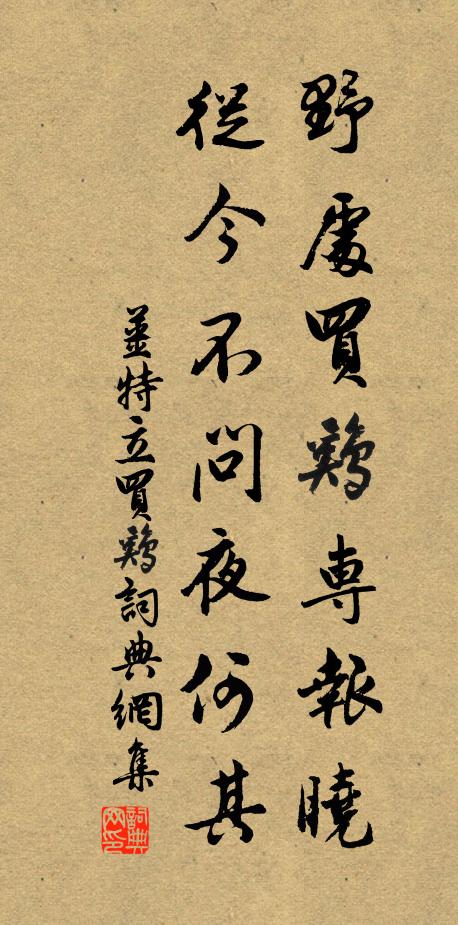 野處買鷄專報曉
從今不問夜何其
薑特立買鷄詞典網集
詞典网印